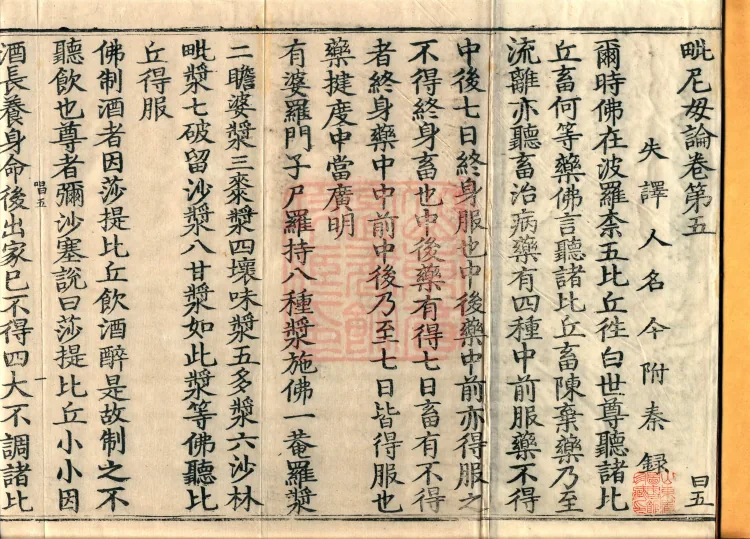 毗尼母論卷第五
曰五
失譯人名今附秦録
爾時佛在波羅柰五比丘徃白世尊聽諸比
丘畜何等藥佛言聽諸比丘畜陳棄藥乃至
流離亦聽畜治病藥有四種中前服藥不得
中後七日終身服也中後藥中前亦得服之
不得終身畜也中後藥有得七日畜有不得
者終身藥中中前中後乃至七日皆得服也
藥揵度中當廣明
有婆羅門子尸羅持八種漿施佛一菴羅漿
二瞻婆漿三棗漿四壞味漿五多漿六沙林
毗漿七破留沙漿八甘漿如此漿等佛聽比
丘得服
佛制酒者因莎提比丘飲酒醉是故制之不
聽飲也尊者彌沙塞說曰莎提比丘小小因
唱五
一
酒長養身命後出家已不得四大不調諸比